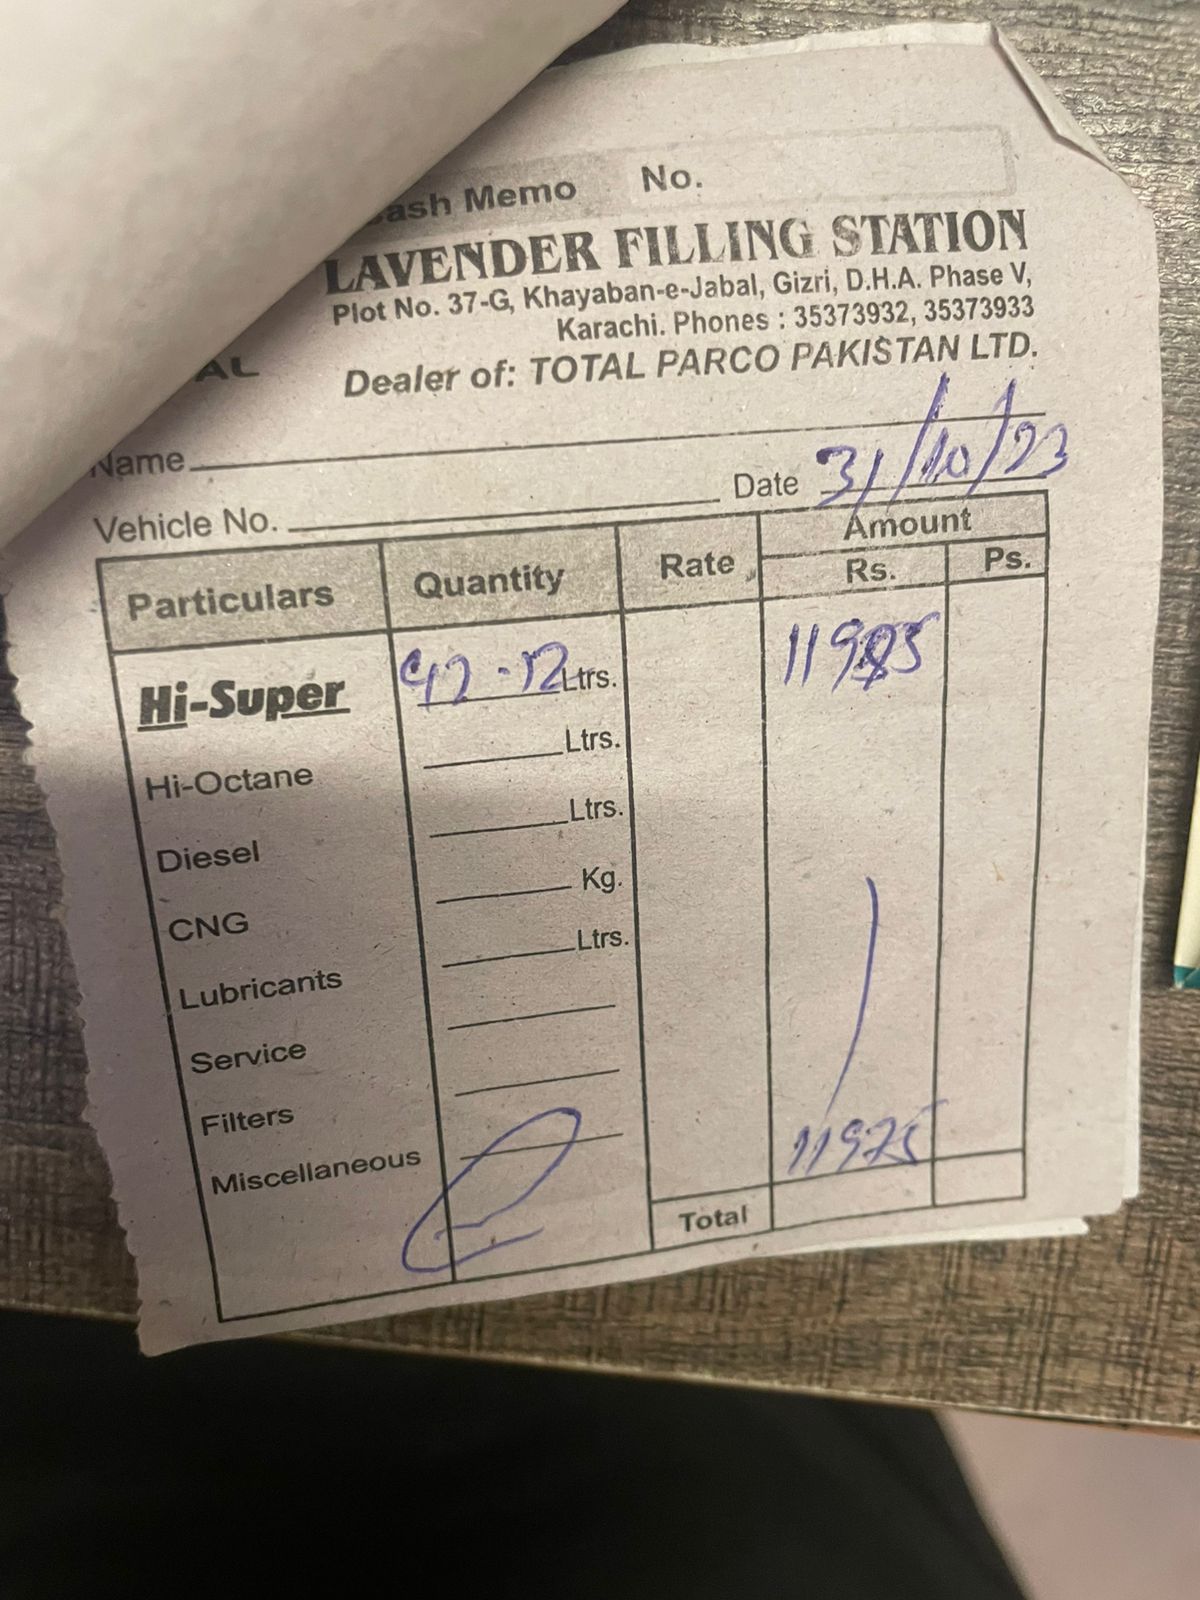 Cash Memo No.
LAVENDER FILLING STATION
Plot No. 37-G, Khayaban-e-Jabal, Gizri, D.H.A. Phase V,
Karachi. Phones : 35373932, 35373933
AL
Dealer of: TOTAL PARCO PAKISTAN LTD.
Name
Vehicle No. Date 31/10/23
Particulars Quantity Rate Amount
Rs. Ps.
Hi-Super Ltrs.
Hi-Octane Ltrs.
Diesel Ltrs.
CNG Kg.
Lubricants Ltrs.
Service
Filters
Miscellaneous 11975
Total